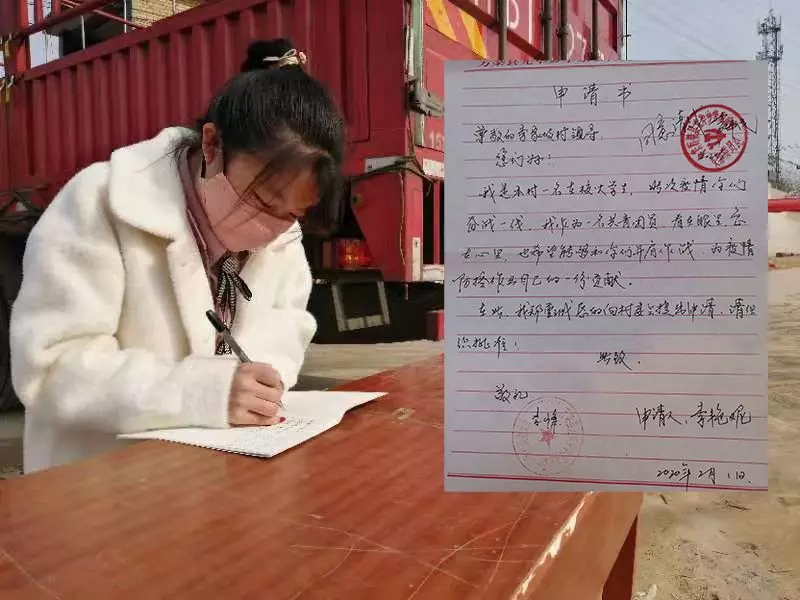 申请书
尊敬的李家坡村领导:
您们好!
我是本村一名在校大学生,此次疫情你们
奋战一线,我作为一名共青团员,看在眼里,急
在心里,也希望能够和你们并肩作战,为疫情
防控作出自己的一份贡献。
在此,我郑重诚恳的向村委会提出申请,请组
织批准!
此致
敬礼
申请人:李艳妮
2020年2月1日